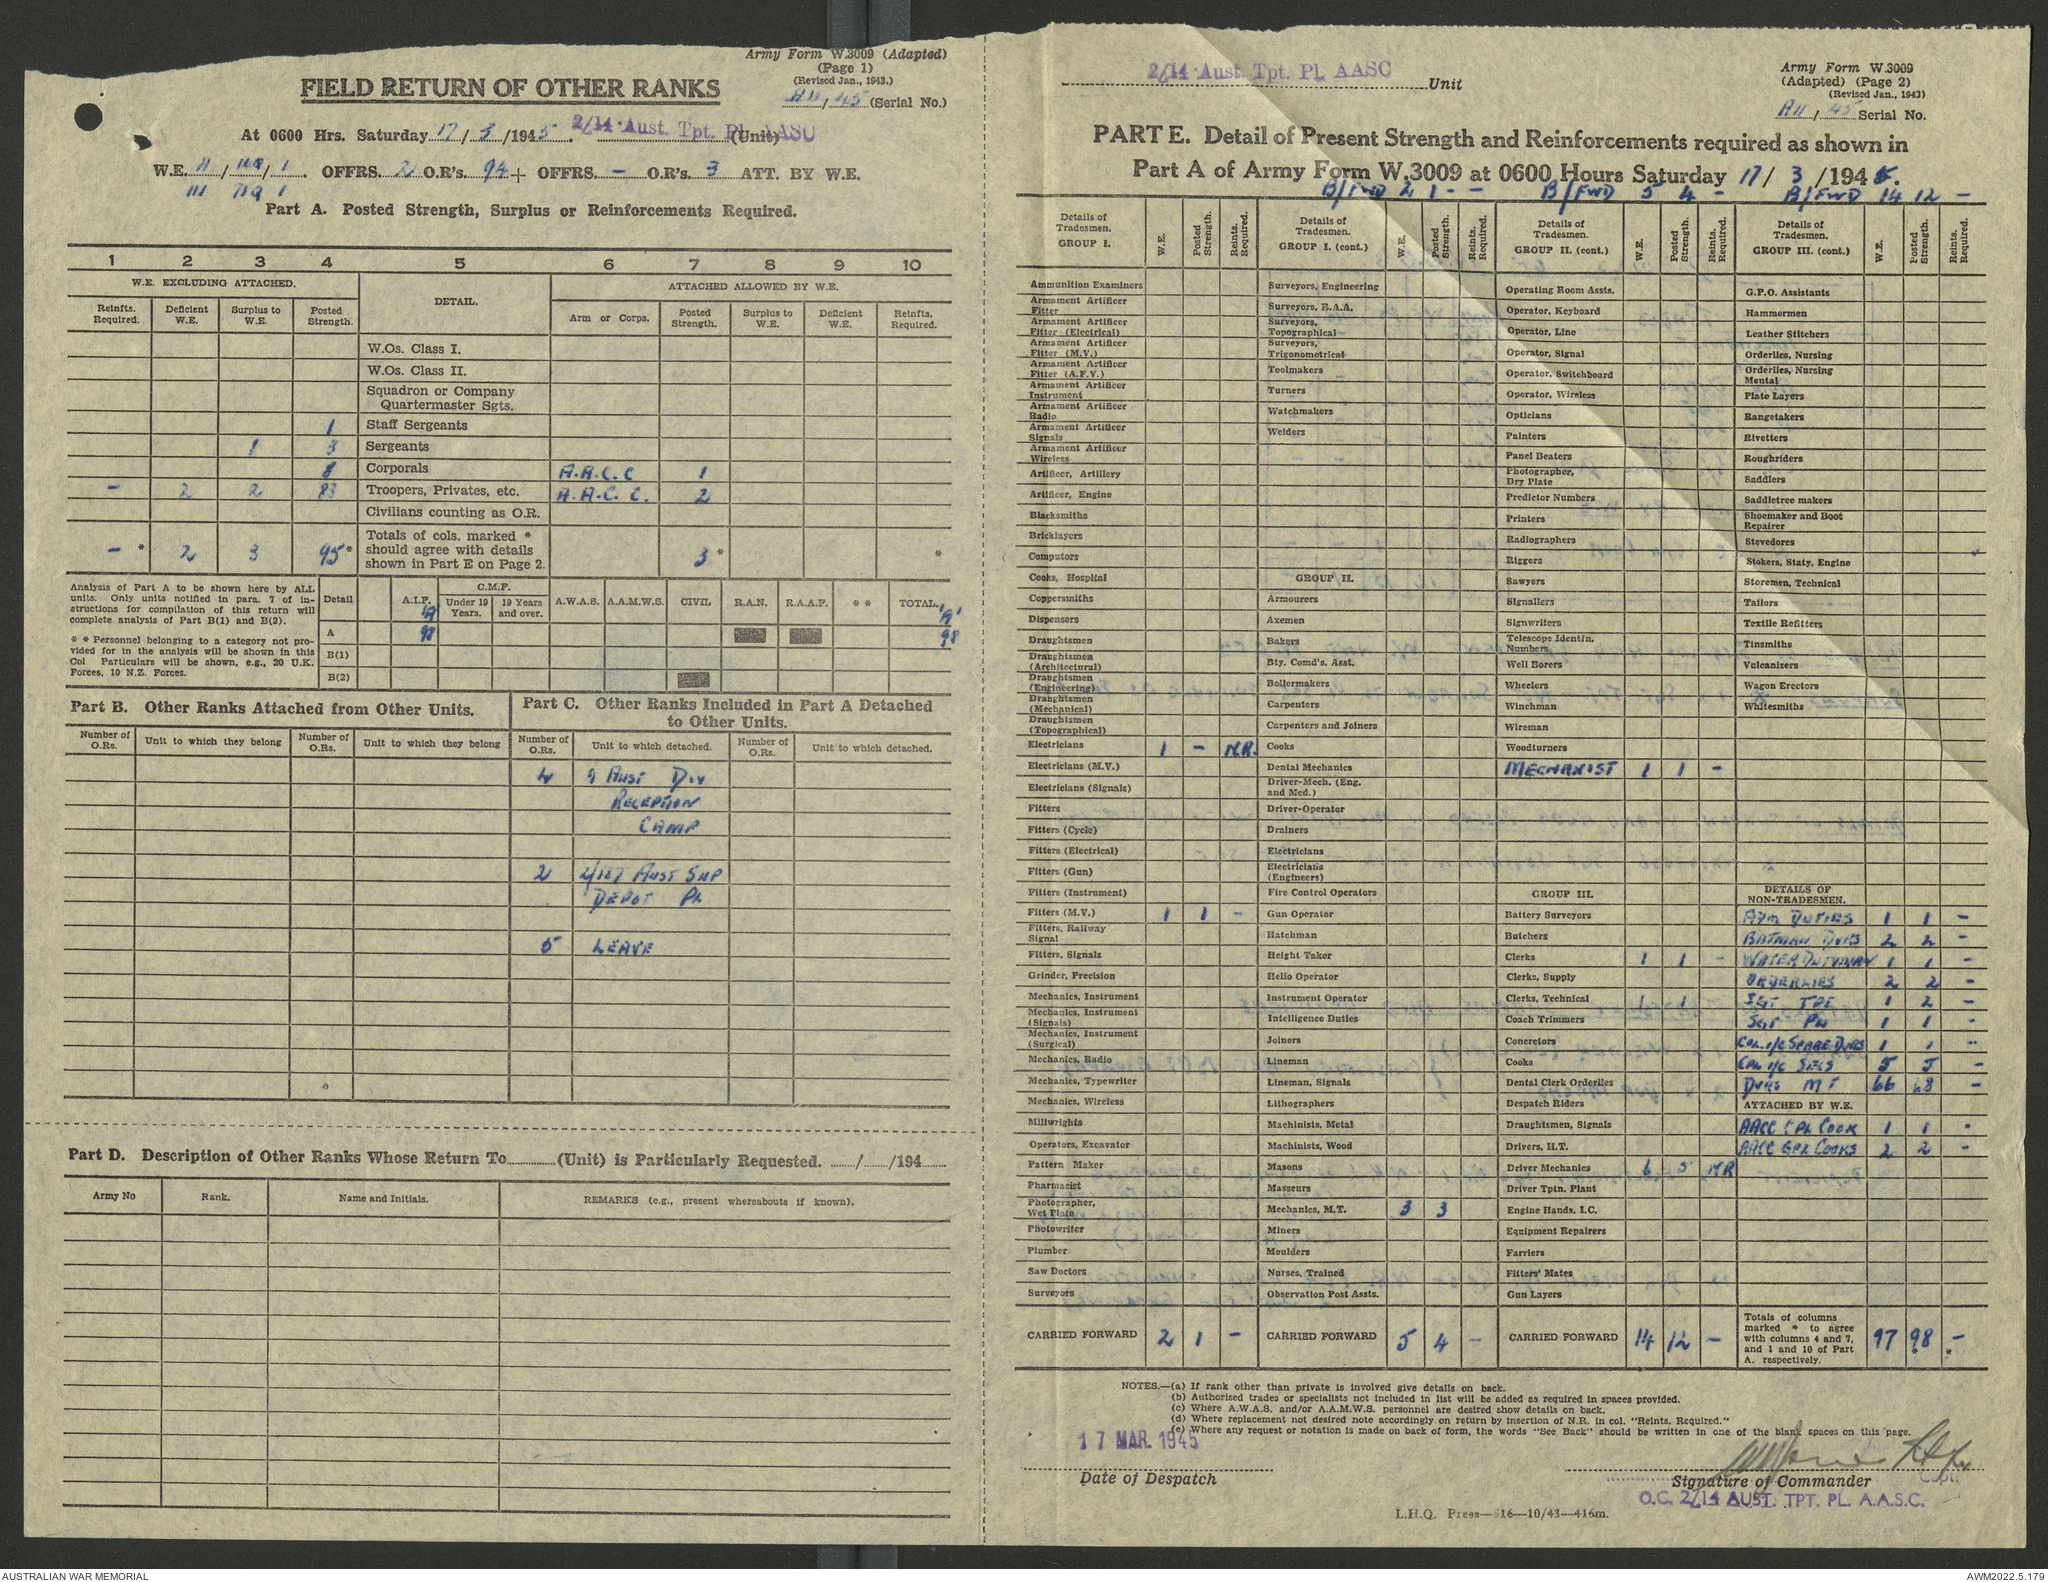 Army Form W.3009 (Adapted)
(Page 1)
(Revised Jan., 1943.)
FIELD RETURN OF OTHER RANKS
AU / 45 (Serial No.)
At 0600 Hrs. Saturday 17 / 3 / 1945. 2/14 Aust. Tpt. Pl. AASC (Unit)
W.E. II / / 1. OFFRS. 2 O.R's. 94 + OFFRS. – O.R's. 3 ATT. BY W.E.
III 1
Part A. Posted Strength, Surplus or Reinforcements Required.
1 2 3 4 5 6 7 8 9 10
W.E. EXCLUDING ATTACHED. DETAIL. ATTACHED ALLOWED BY W.E.
Reinfts. Required. Deficient W.E. Surplus to W.E. Posted Strength. Arm or Corps. Posted Strength. Surplus to W.E. Deficient W.E. Reinfts. Required.
W.Os. Class I.
W.Os. Class II.
Squadron or Company
Quartermaster Sgts.
1 Staff Sergeants
1 3 Sergeants
8 Corporals A.A.C.C 1
– 2 2 83 Troopers, Privates, etc. A.A.C.C. 2
Civilians counting as O.R.
Totals of cols. marked *
– * 2 3 95 * should agree with details 3 * *
shown in Part E on Page 2.
Analysis of Part A to be shown here by ALL
units. Only units notified in para. 7 of in-
structions for compilation of this return will
complete analysis of Part B(1) and B(2).
* * Personnel belonging to a category not pro-
vided for in the analysis will be shown in this
Col Particulars will be shown, e.g., 20 U.K.
Forces, 10 N.Z. Forces.
Detail A.I.F. C.M.F. Under 19 Years. 19 Years and over. A.W.A.S. A.A.M.W.S. CIVIL R.A.N. R.A.A.F. * * TOTAL.
'A' 'A'
A 98 98
B(1)
B(2)
Part B. Other Ranks Attached from Other Units.
Number of O.Rs. Unit to which they belong Number of O.Rs. Unit to which they belong
Part C. Other Ranks Included in Part A Detached
to Other Units.
Number of O.Rs. Unit to which detached. Number of O.Rs. Unit to which detached.
4 9 AUST DIV
RECEPTION
CAMP
2 2/127 AUST SUP
DEPOT PL
5 LEAVE
Part D. Description of Other Ranks Whose Return To (Unit) is Particularly Requested. / /194
Army No Rank. Name and Initials. REMARKS (e.g., present whereabouts if known).
2/14 Aust. Tpt. Pl. AASC Unit
Army Form W.3009
(Adapted) (Page 2)
(Revised Jan., 1943)
AU / 45 Serial No.
PART E. Detail of Present Strength and Reinforcements required as shown in
Part A of Army Form W.3009 at 0600 Hours Saturday 17 / 3 / 1945.
B/FWD 2 1 – – B/FWD 5 4 – B/FWD 14 12 –
Details of Tradesmen. GROUP I. W.E. Posted Strength. Reints. Required.
Ammunition Examiners
Armament Artificer Fitter
Armament Artificer Fitter (Electrical)
Armament Artificer Fitter (M.V.)
Armament Artificer Fitter (A.F.V.)
Armament Artificer Instrument
Armament Artificer Radio
Armament Artificer Signals
Armament Artificer Wireless
Artificer, Artillery
Artificer, Engine
Blacksmiths
Bricklayers
Computors
Cooks, Hospital
Coppersmiths
Dispensers
Draughtsmen
Draughtsmen (Architectural)
Draughtsmen (Engineering)
Draughtsmen (Mechanical)
Draughtsmen (Topographical)
Electricians 1 – N.R.
Electricians (M.V.)
Electricians (Signals)
Fitters
Fitters (Cycle)
Fitters (Electrical)
Fitters (Gun)
Fitters (Instrument)
Fitters (M.V.) 1 1 –
Fitters, Railway Signal
Fitters, Signals
Grinder, Precision
Mechanics, Instrument
Mechanics, Instrument (Signals)
Mechanics, Instrument (Surgical)
Mechanics, Radio
Mechanics, Typewriter
Mechanics, Wireless
Millwrights
Operators, Excavator
Pattern Maker
Pharmacist
Photographer, Wet Plate
Photowriter
Plumber
Saw Doctors
Surveyors
CARRIED FORWARD 2 1 –
Details of Tradesmen. GROUP I. (cont.) W.E. Posted Strength. Reints. Required.
Surveyors, Engineering
Surveyors, R.A.A.
Surveyors, Topographical
Surveyors, Trigonometrical
Toolmakers
Turners
Watchmakers
Welders
GROUP II.
Armourers
Axemen
Bakers
Bty. Comd's. Asst.
Boilermakers
Carpenters
Carpenters and Joiners
Cooks
Dental Mechanics
Driver-Mech. (Eng. and Med.)
Driver-Operator
Drainers
Electricians
Electricians (Engineers)
Fire Control Operators
Gun Operator
Hatchman
Height Taker
Helio Operator
Instrument Operator
Intelligence Duties
Joiners
Lineman
Lineman, Signals
Lithographers
Machinists, Metal
Machinists, Wood
Masons
Masseurs
Mechanics, M.T. 3 3
Miners
Moulders
Nurses, Trained
Observation Post Assts.
CARRIED FORWARD 5 4 –
Details of Tradesmen. GROUP II. (cont.) W.E. Posted Strength. Reints. Required.
Operating Room Assts.
Operator, Keyboard
Operator, Line
Operator, Signal
Operator, Switchboard
Operator, Wireless
Opticians
Painters
Panel Beaters
Photographer, Dry Plate
Predictor Numbers
Printers
Radiographers
Riggers
Sawyers
Signallers
Signwriters
Telescope Identfn. Numbers
Well Borers
Wheelers
Winchman
Wireman
Woodturners
MECHANIST 1 1 –
GROUP III.
Battery Surveyors
Butchers
Clerks 1 1 –
Clerks, Supply
Clerks, Technical 1 1
Coach Trimmers
Concretors
Cooks
Dental Clerk Orderlies
Despatch Riders
Draughtsmen, Signals
Drivers, H.T.
Driver Mechanics 6 5 NR
Driver Tptn. Plant
Engine Hands, I.C.
Equipment Repairers
Farriers
Fitters' Mates
Gun Layers
CARRIED FORWARD 14 12 –
Details of Tradesmen. GROUP III. (cont.) W.E. Posted Strength. Reints. Required.
G.P.O. Assistants
Hammermen
Leather Stitchers
Orderlies, Nursing
Orderlies, Nursing Mental
Plate Layers
Rangetakers
Rivetters
Roughriders
Saddlers
Saddletree makers
Shoemaker and Boot Repairer
Stevedores
Stokers, Staty. Engine
Storemen, Technical
Tailors
Textile Refitters
Tinsmiths
Vulcanizers
Wagon Erectors
Whitesmiths
DETAILS OF NON-TRADESMEN.
ADM DUTIES 1 1 –
BATMAN DVRS 2 2 –
WATER DUTYMAN 1 1 –
ORDERLIES 2 2 –
SGT TPT 1 2 –
SGT PN 1 1 –
CPL I/C SPARE DVRS 1 1 –
CPL I/C SECS 5 5 –
DVRS MT 66 68 –
ATTACHED BY W.E.
AACC CPL COOK 1 1 –
AACC GPII COOKS 2 2 –
Totals of columns marked * to agree with columns 4 and 7, and 1 and 10 of Part A. respectively. 97 98 * – *
NOTES.—(a) If rank other than private is involved give details on back.
(b) Authorised trades or specialists not included in list will be added as required in spaces provided.
(c) Where A.W.A.S. and/or A.A.M.W.S. personnel are desired show details on back.
(d) Where replacement not desired note accordingly on return by insertion of N.R. in col. "Reints. Required."
(e) Where any request or notation is made on back of form, the words "See Back" should be written in one of the blank spaces on this page.
17 MAR 1945
Date of Despatch
Signature of Commander
Capt.
O.C. 2/14 AUST. TPT. PL. A.A.S.C.
L.H.Q. Press—416—10/43—416m.
AUSTRALIAN WAR MEMORIAL
AWM2022.5.179